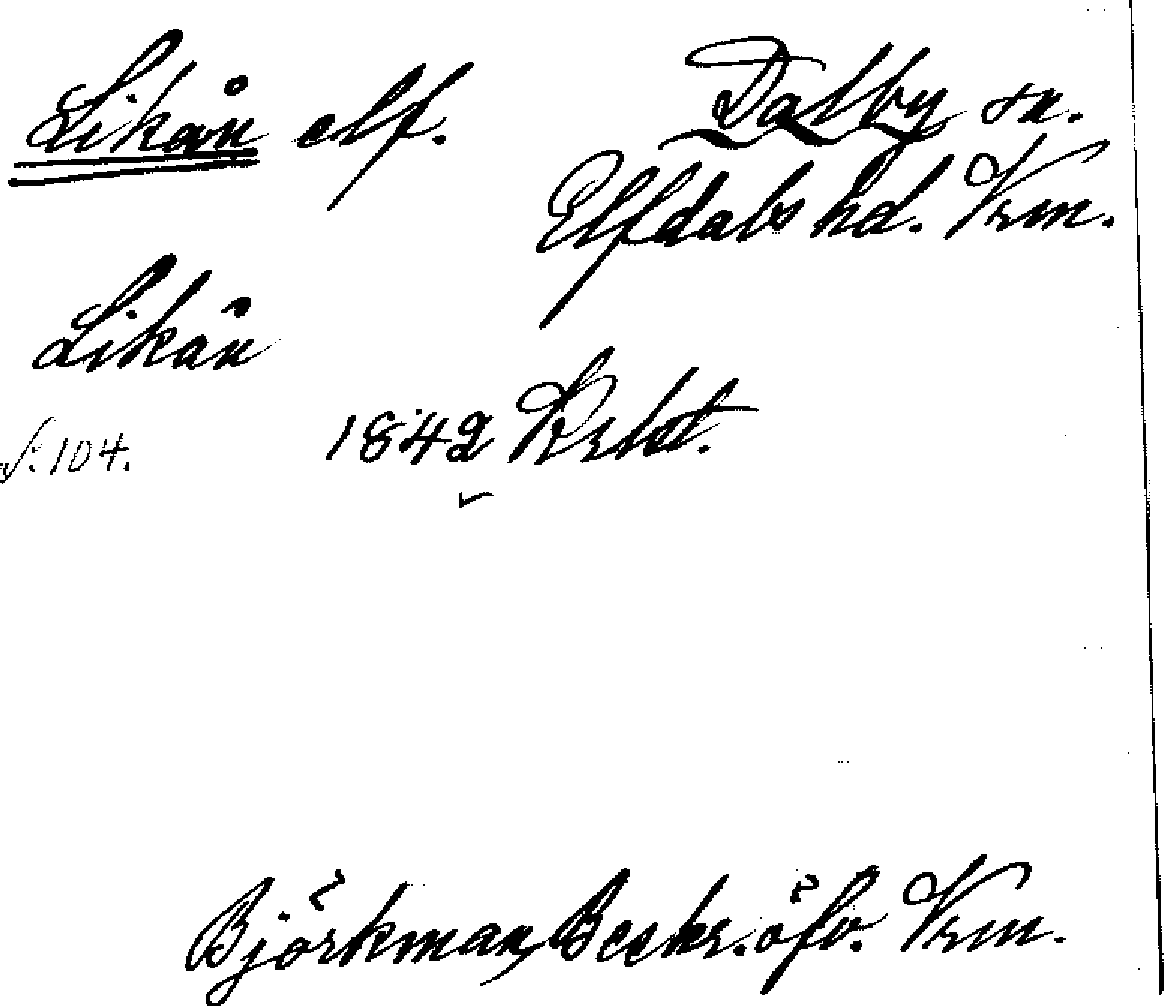 Likån elf. Dalby sn.
Elfdals hd. Vrm.
Likån
s. 104. 1842
Björkman, Beskr. öfv. Vrm.